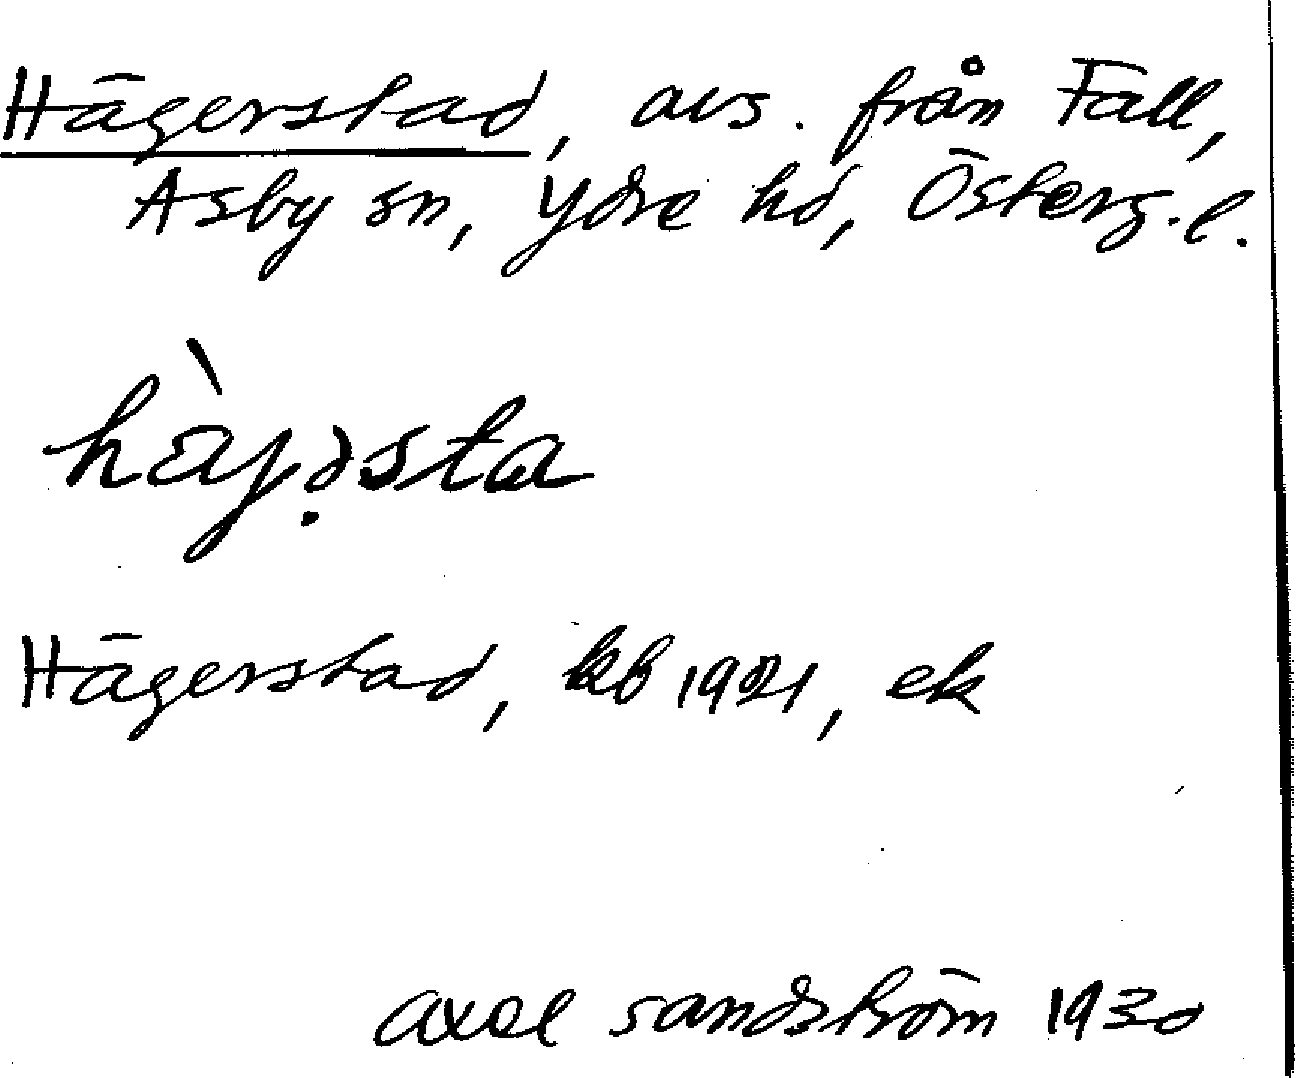 Hägerstad, avs. från Fall,
Asby sn, Ydre hd, Österg. l.
hàɡ̣əsta
Hägerstad, kb 1921, ek
Axel Sandström 1930